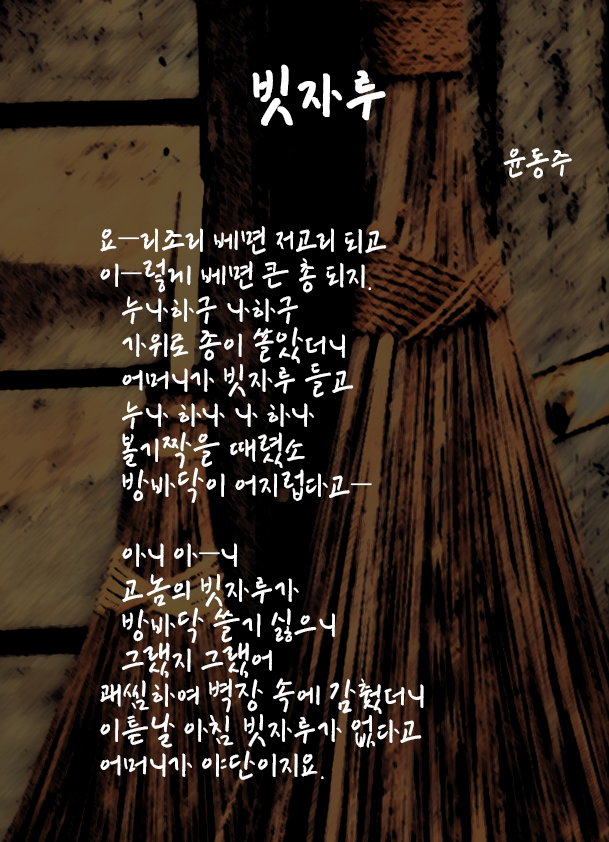 빗자루
윤동주
요―리조리 베면 저고리 되고
이―렇게 베면 큰 총 되지.
누나하구 나하구
가위로 종이 쏠았더니
어머니가 빗자루 들고
누나 하나 나 하나
볼기짝을 때렸소
방바닥이 어지럽다고―
아니 아―니
고놈의 빗자루가
방바닥 쓸기 싫으니
그랬지 그랬어
괘씸하여 벽장 속에 감췄더니
이튿날 아침 빗자루가 없다고
어머니가 야단이지요.